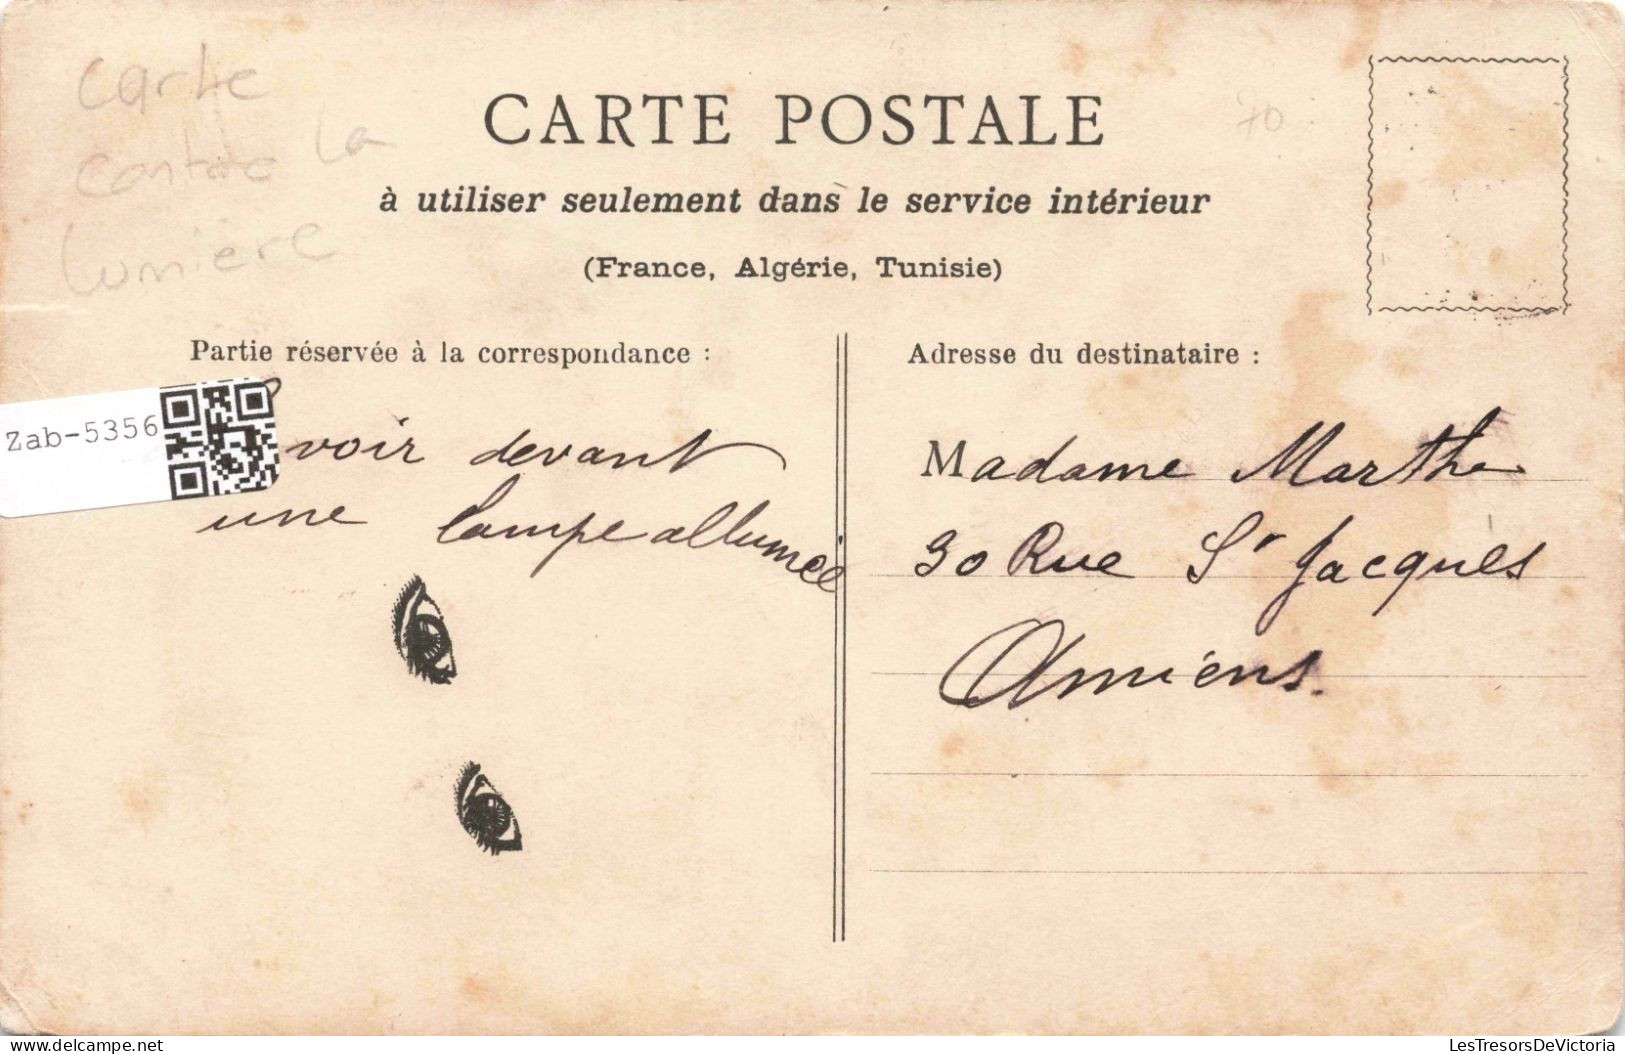 carte
contre la
lumière
CARTE POSTALE
70
à utiliser seulement dans le service intérieur
(France, Algérie, Tunisie)
Partie réservée à la correspondance :
Adresse du destinataire :
Zab-5356
voir devant
une lampe allumée
Madame Marthe
30 Rue St Jacques
Amiens.
delcampe.net
LesTresorsDeVictoria